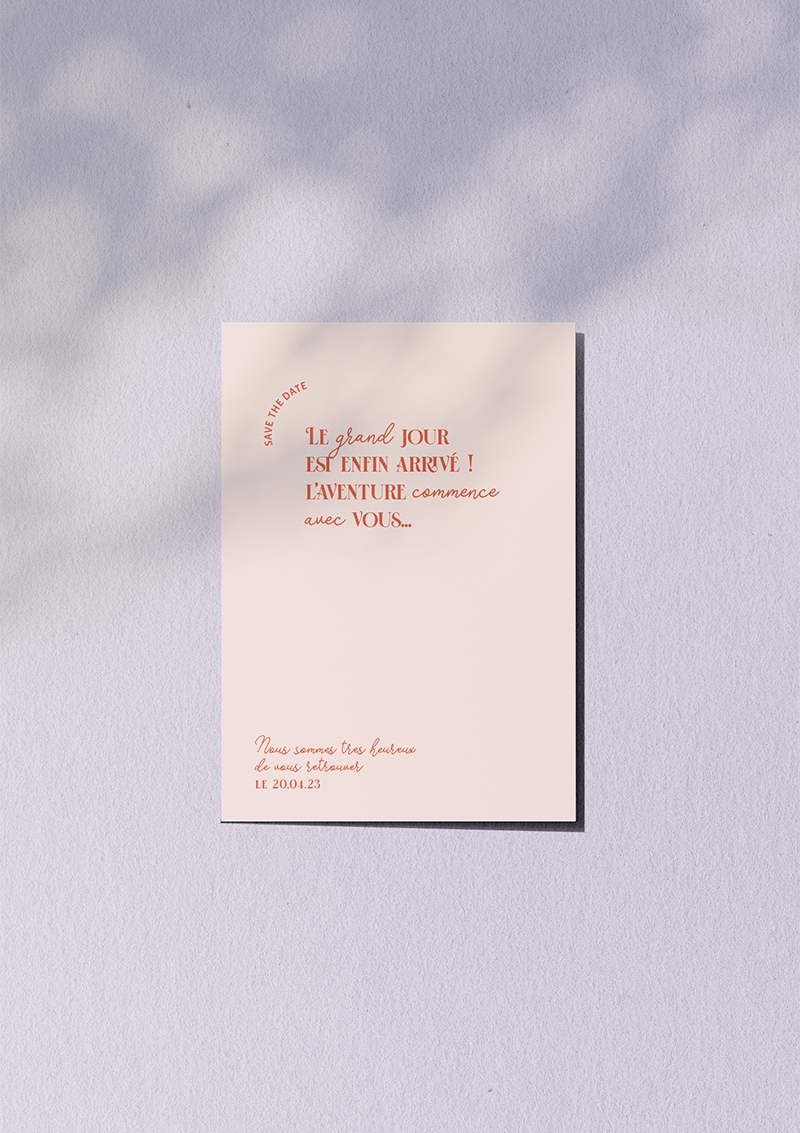 SAVE THE DATE
LE grand JOUR
EST ENFIN ARRIVÉ !
L'AVENTURE commence
avec VOUS...
Nous sommes tres heureux
de vous retrouver
LE 20.04.23